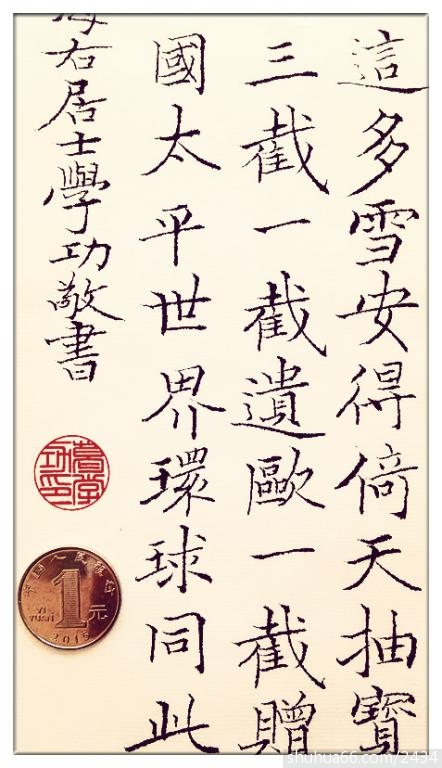 這多雪安得倚天抽寶
三截一截遺歐一截贈
國太平世界環球同此
海右居士學功敬書
中国人民银行
1元
YI YUAN
2015
shuhua66.com/2434